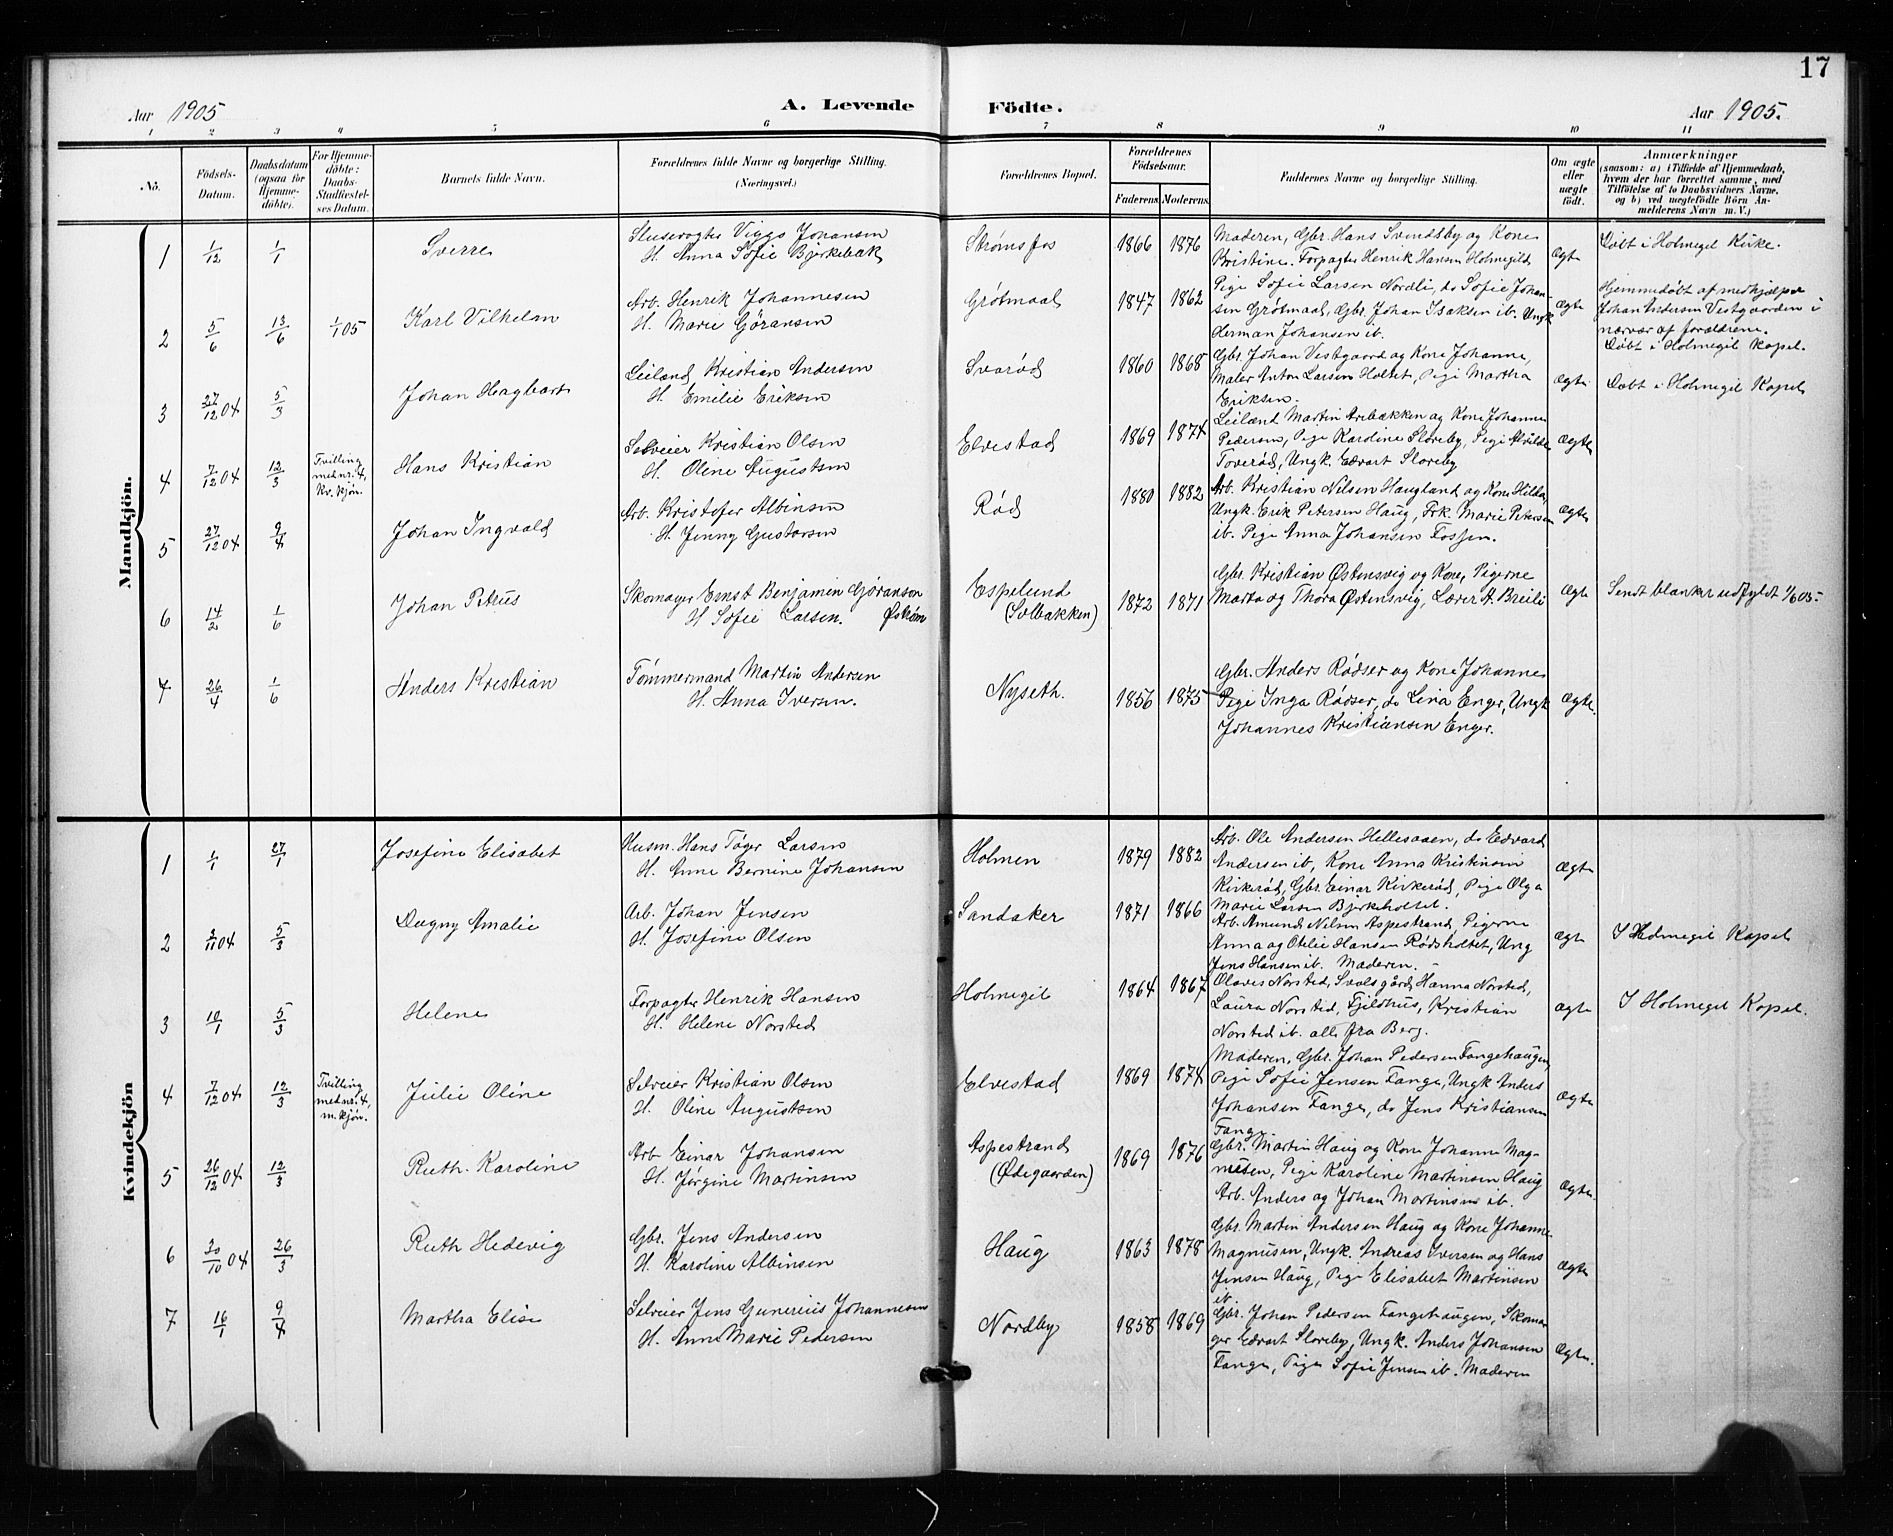 17
Aar 1905 A. Levende Födte. Aar 1905.
1 2 3 4 5 6 7 8 9 10 11
No.
Födsels-
Datum.
Daabsdatum
(ogsaa for
Hjemme-
döbte).
For Hjemme-
döbte:
Daabs-
Stadfæstel-
ses Datum.
Barnets fulde Navn.
Forældrenes fulde Navne og borgerlige Stilling.
(Næringsvei.)
Forældrenes Bopæl.
Forældrenes
Födselsaar.
Faderens. Moderens.
Faddernes Navne og borgerlige Stilling.
Om ægte
eller
uægte
födt.
Anmærkninger
(saasom: a) i Tilfælde af Hjemmedaab,
hvem der har forrettet samme, med
Tilföielse af to Daabsvidners Navne,
og b) ved uegtefödte Börn An-
melderens Navn m. V.)
Mandkjön.
1 1/12 1/1 Sverre
Slusevogter Viggo Johansen
H. Anna Sofie Bjerkebæk
Strømsfos 1866 1876
Moderen, Gbr. Hans Svendsby og Kone
Kristine. Forpagter Henrik Hansen Holmegild
Ægte
Døbt i Holmegil Kirke.
2 5/6 13/6 1/1 05 Karl Vilhelm
Arb. Henrik Johannesen
H. Marie Gøransen
Grøtmaal 1847 1862
Pige Sofie Larsen Nordli, do Sofie Johan-
sen Grøtmaal, Gbr. Johan Isaksen ib. Ungk
Herman Johansen ib.
Ægte
Hjemmedøbt af medhjælper
Johan Andersen Vestgaarden i
nærvær af forældrene.
Døbt i Holmegil Kapel.
3 27/12 04 5/3 Johan Hagbart
Leilænd. Kristian Andersen
H. Emilie Eriksen
Svarød 1860 1868
Gbr. Johan Vestgaard og Kone Johanne,
Maler Anton Larsen Holtet, Pige Martha
Eriksen.
Ægte
Døbt i Holmegil Kapel
4 7/12 04 12/3
Tvilling
med nr. 4,
Kv. kjøn.
Hans Kristian
Selveier Kristian Olsen
H. Oline Augustsen
Elvestad 1869 1874
Leilænd Martin Arebækken og Kone Johanne
Pedersen, Pige Karoline Sloreby, Pige Alvilde
Toverød, Ungk. Edvart Sloreby
Ægte
5 27/12 04 9/4 Johan Ingvald
Arb. Kristofer Albinsen
H. Jenny Gustavsen
Rød 1880 1882
Arb. Kristian Nilsen Haugland og Kone Hilda,
Ungk. Erik Petersen Haug, Frk. Marie Petersen
ib. Pige Anna Johansen Fossen.
Ægte
6 14/2 1/6 Johan Petrus
Skomager Ernst Benjamin Gjøransen
H. Sofie Larsen.
Espelund
(Solbakken)
1872 1871
Gbr. Kristian Østensvig og Kone, Pigerne
Marta og Thora Østensvig, Lærer A. Breili
Ægte
Sendt blanket udfyldt 1/6 05
4 26/4 1/6 Anders Kristian
Tømmermand Martin Andersen
H. Anna Iversen.
Nyseth. 1856 1875
Gbr. Anders Rødser og Kone Johanne
Pige Inga Rødser, do Lina Enger, Ungk
Johannes Kristiansen Enger.
Ægte.
Kvindekjön
1 1/1 27/1 Josefine Elisabet
Husm. Hans Tøger Larsen
H. Anne Bernine Johansen
Holmen 1879 1882
Arb. Ole Andersen Hellesaaen, do Edvard
Andersen ib, Kone Anna Kristinsen
Kirkerød, Gbr. Einar Kirkerød, Pige Olga
Marie Larsen Bjerkeholtet.
Ægte
2 2/11 04 5/3 Dagny Amalie
Arb. Johan Jensen
H. Josefine Olsen
Sandaker 1871 1866
Arb. Amund Nilsen Aspestrand, Pigerne
Anna og Otelie Hansen Rødsholtet, Ung
Jens Hansen ib. Moderen.
Ægte
I Holmegil Kapel
3 10/1 5/3 Helene
Forpagter Henrik Hansen
H. Helene Norsted
Holmegil 1864 1867
Olaves Norsted, Svalsgård, Hanna Norsted,
Laura Norsted, Fjeldhus, Kristian
Norsted ib. alle fra Berg.
Ægte
I Holmegil Kapel.
4 7/12 04 12/3
Tvilling
med nr. 4,
m. kjøn.
Julie Oline
Selveier Kristian Olsen
H. Oline Augustsen
Elvestad 1869 1874
Moderen, Gbr. Johan Pedersen Fangehaugen,
Pige Sofie Jensen Fange, Ungk Anders
Johansen Fange, do Jens Kristiansen
Fange
Ægte
5 26/12 04 12/3 Ruth Karoline
Arb Einar Johansen
H. Jørgine Martinsen
Aspestrand
(Ødegaarden)
1869 1876
Gbr. Martin Haug og Kone Johanne Mag-
nusen, Pige Karoline Martinsen Haug
Arb. Anders og Johan Martinsen ib.
Ægte.
6 30/10 04 26/3 Ruth Hedevig
Gbr. Jens Andersen
H. Karoline Albinsen
Haug 1863 1878
Gbr. Martin Andersen Haug og Kone Johanne
Magnusen, Ungk. Andreas Iversen og Hans
Jensen Haug, Pige Elisabet Martinsen
ib.
Ægte
7 16/1 9/4 Martha Elise
Selveier Jens Gunerius Johannesen
H. Anne Marie Pedersen
Nordby 1858 1869
Gbr. Johan Pedersen Fangehaugen, Skoma-
ger Edvart Sloreby, Ungk. Anders Johansen
Fange, Pige Sofie Jensen ib. Moderen
Ægte.